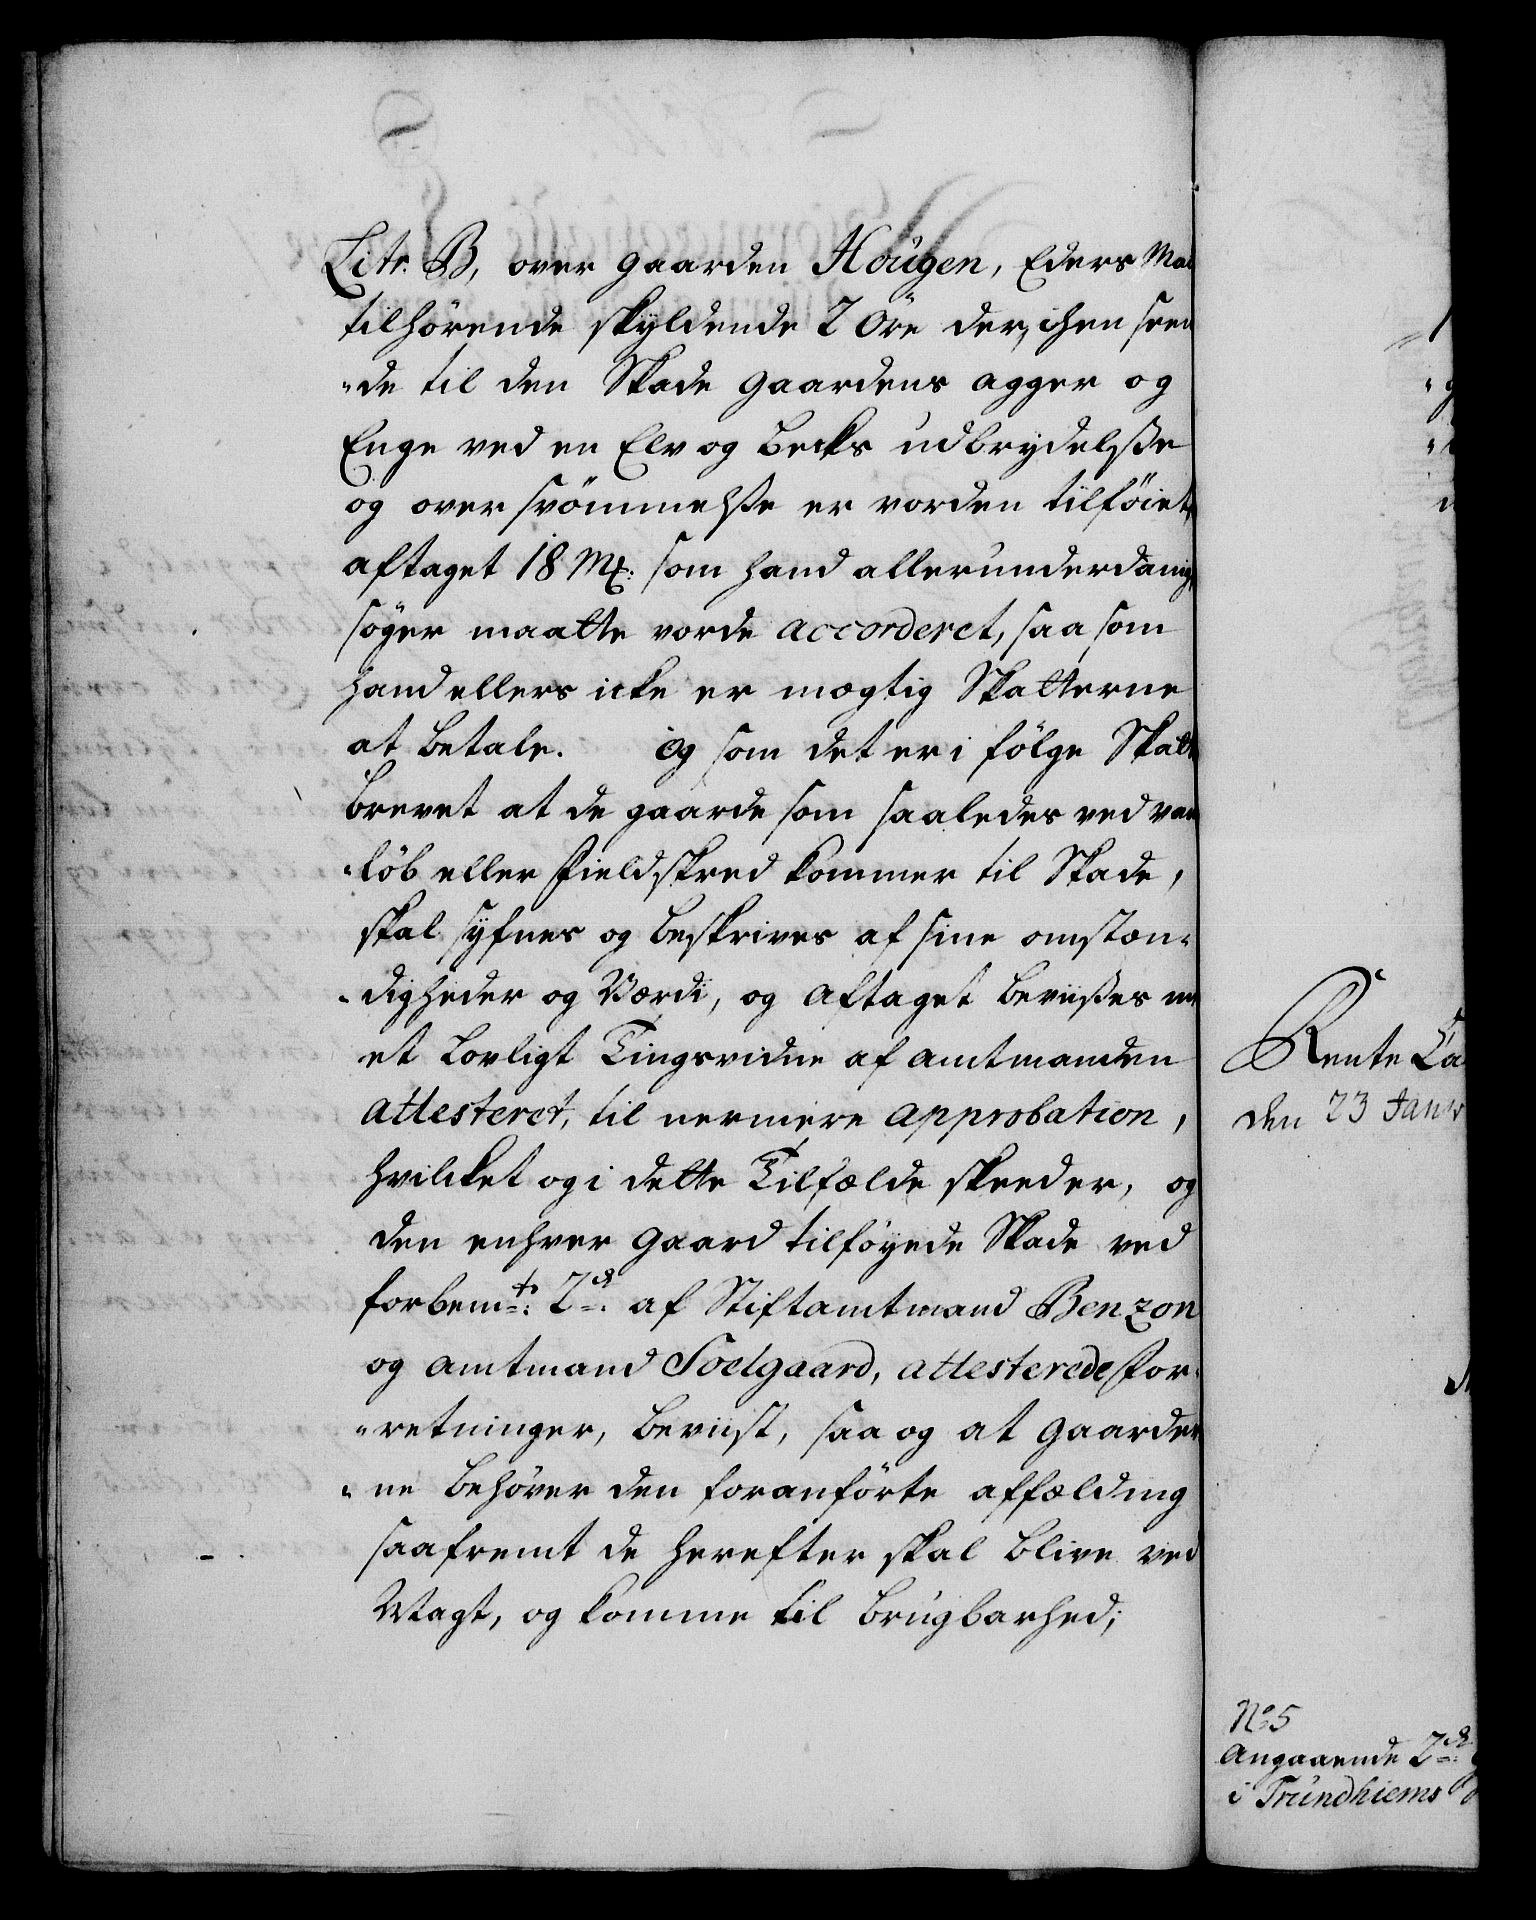 Litr. B, over gaarden Hougen, Eders Ma
tilhörende skyldende 2 Öre der, ihen seen
de til den Skade gaardens agger og
Enge ved en Elv og Becks udbrydelsße
og oversvömmelsße er vorden tilföiet,
aftaget 18 Mk: som hand allerunderdanig,
söger maatte vorde accorderet, saa som
hand ellers icke er mægtig Skatterne
at betale. og som det er i fölge Skatt
brevet at de gaarde som saaledes ved van
löb eller Fieldskred kommer til Skade,
skal syfnes og beskrives af sine omstæn-
digheder og Værdi, og aftaget beviißes m
et Lovligt Tingsvidne af Amtmanden
attesteret, til nermere approbation,
hvilcket og i dette Tilfælde skeeder, og
den enhver gaard tilföyede Skade ved
forbemte: 2de: af Stiftamtmand Benzon
og Amtmand Soelgaard, attesterede for-
retninger, beviist, saa og at gaarder
ne behöver den foranförte affælding
saafremt de herefter skal blive ved
Magt, og komme til brugbarhed;
Rente Ca
den 23 Janv
No 5
Angaaende 2de:
i Trundhiems